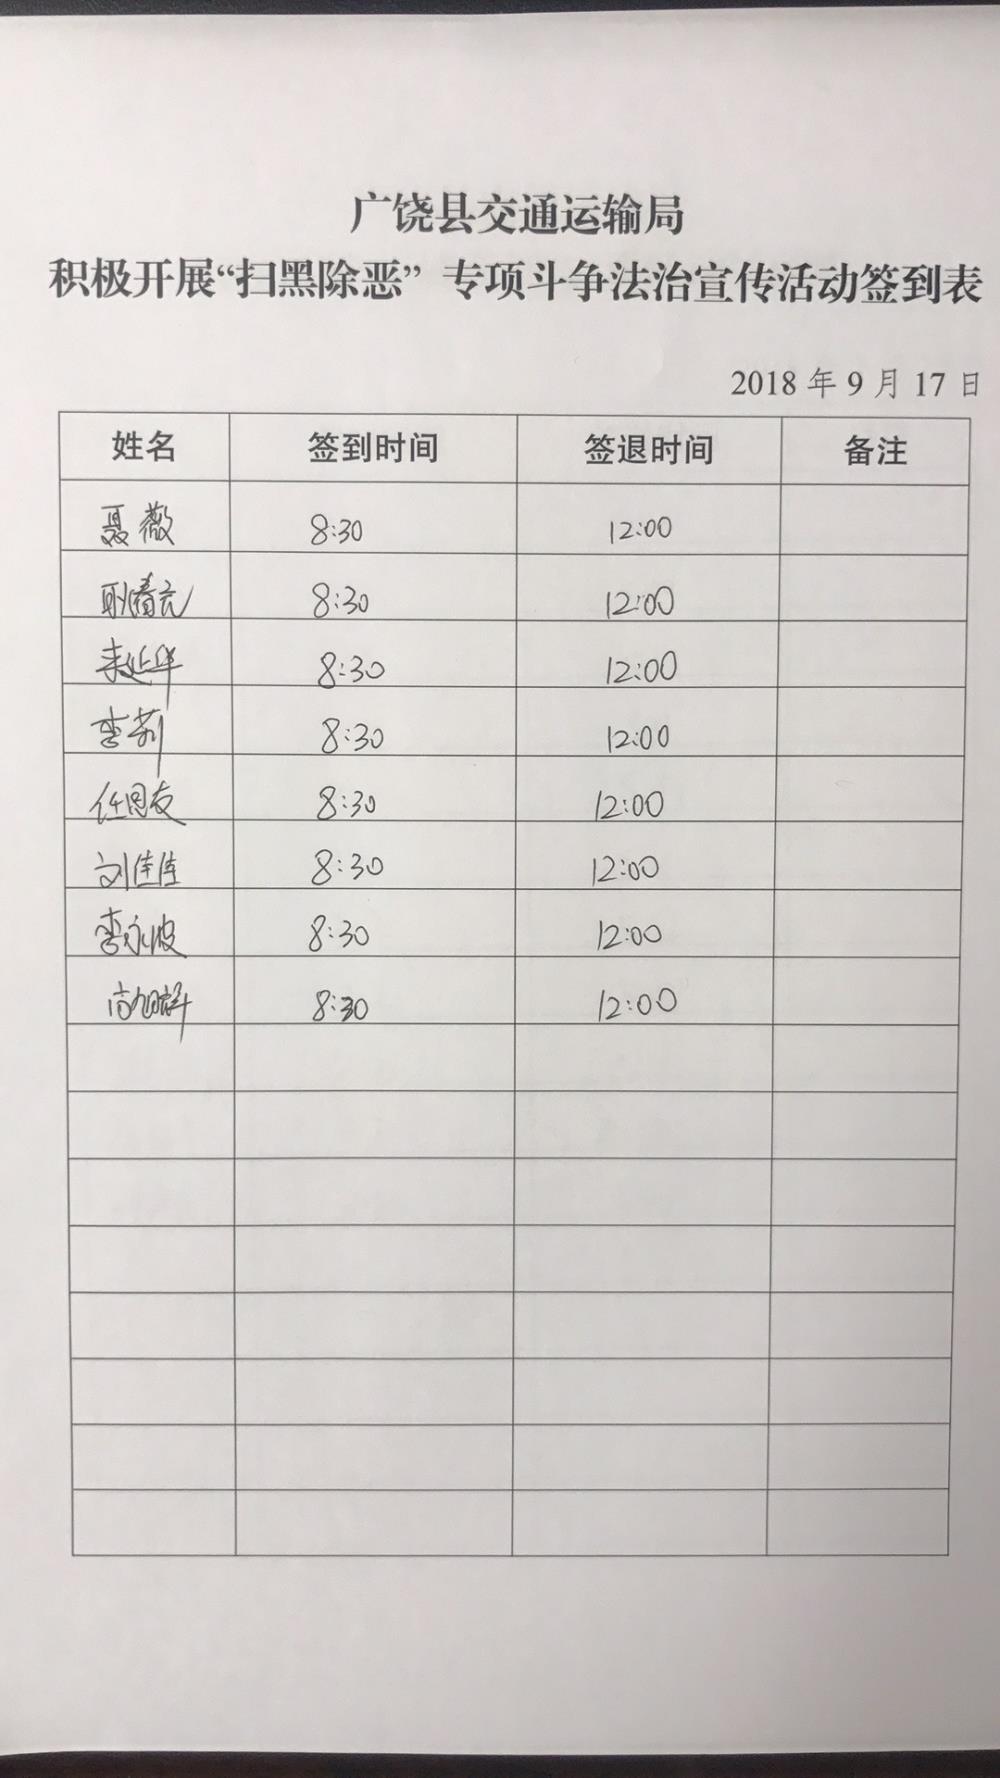 广饶县交通运输局
积极开展“扫黑除恶” 专项斗争法治宣传活动签到表
2018 年 9 月 17 日
姓名 签到时间 签退时间 备注
聂薇 8:30 12:00
耿春元 8:30 12:00
来延华 8:30 12:00
李莉 8:30 12:00
任思友 8:30 12:00
刘佳佳 8:30 12:00
李永波 8:30 12:00
尚旭辉 8:30 12:00